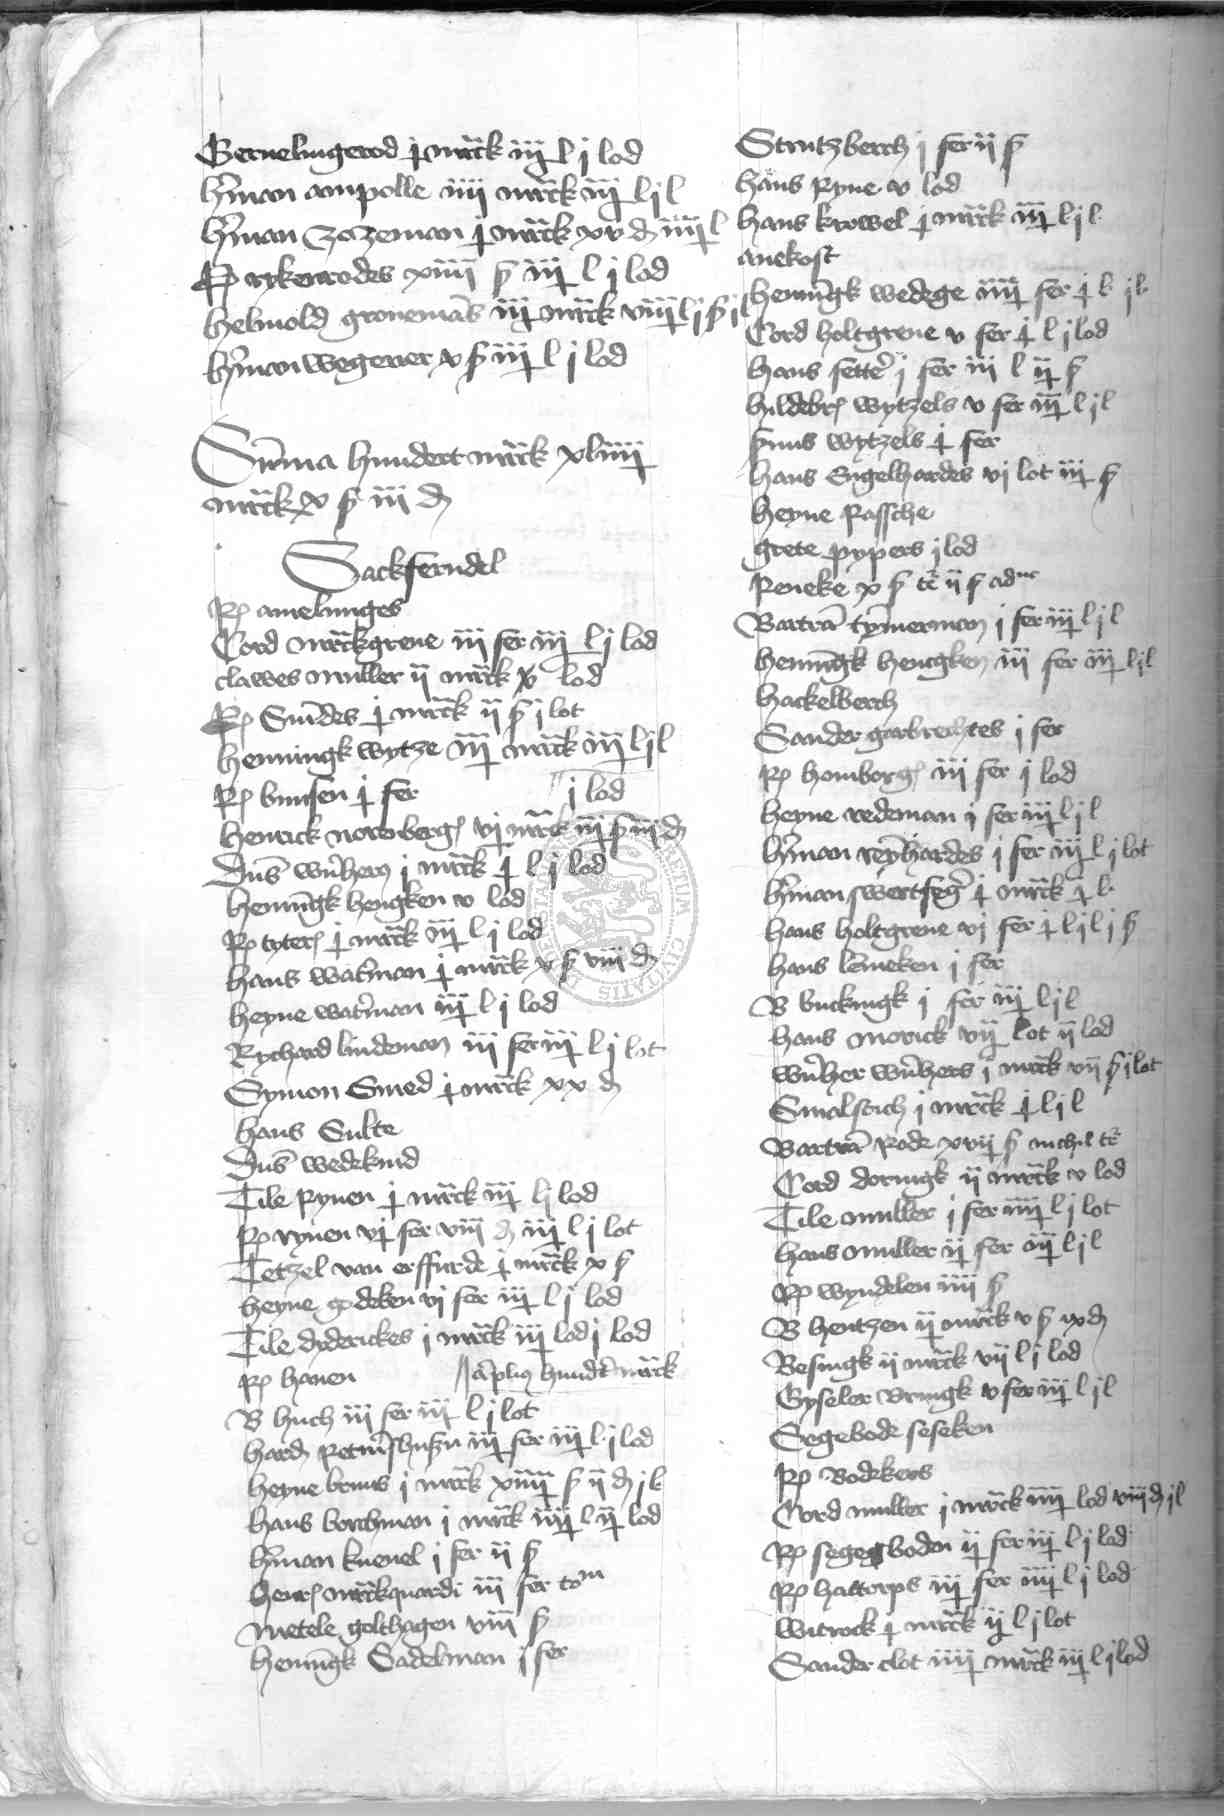 Bernelingerod j marck iij l j lod
h'man ampolle iiij marck iij l j l
h'man zozeman j marck xv d iiij l
Rp rykenrodes xiiii s iij l j lod
helmold gronemans iij marck viiij l j s j l
h'man wegener x s iij l j lod
Sum̄a hundert marck xliiij
marck x s iii d
Sackferndel
Rp amelunges
Cord marckgreue iii fer iij l j lod
clawes muller ij marck x lod
Rp Smedes j marck ij s j lot
henningk wytze iij marck iij l j l
Rp bunsen j fer j lod
henrick norenberg vj marck iij s iij d
Dns wn'hers j marck j l j lod
henningk hengken v lod
Rp tyters j marck iij l j lod
hans wat'man j marck v s viii d
heyne wat'man iij l j lod
Rychard lindeman iii fer iij l j lot
Symon Smed j marck xx d
hans Sulte
Dns wedekind
Tile Rynen j marck iij l j lod
Rp rynen vj fer viii d iij l j lot
Tetzel van erffurde j marck x s
heyne godeken vj fer iij l j lod
Tile dyderickes j marck iij lod j lod
Rp hanen a'plus hund't marck
B huch iii fer iii l j lot
hard iij fer iij l j lod
heyne bruns j marck xiiij s ij d j l
hans borchman j marck iiij l ij lod
h'man kneuel j fer ij s
henr marckquardi iii fer tom
metele golthagen viii s
henningk Sadelman j fer
Strutzberch j fer ij s
hans Ryne v lod
hans krowel j marck iij l j l
anekost
henningk wedege iiij fer j l j l
Cord holtgreue v fer j l j lod
hans sett' j fer iii l ij s
hildebr wytzels v fer iij l j l
wytzels j fer
hans Engelhardes vj lot iij s
heyne Rassche
grete pypers j lod
Reneke x s tt ij s aduc
Bartra tym'erman j fer iij l j l
henningk hengken iii fer iij l j l
hackelberch
Sander garbrechtes j fer
Rp homborg iii fer j lod
heyne redeman j fer iij l j l
h'man reyn'hardes j fer iij l j lot
h'man swertfeg' j marck j l
hans holtgreue vj fer j l j l j s
hans lemeken j fer
B buckingk j fer iij l j l
hans morick vij lot ij lod
wn'her wn'hers j marck vij s j lot
Smalstich j marck j l j l
Bartra Rode xvij s nichil tt
Cord doringk ij marck v lod
Tile muller j fer iiij l j lot
hans muller ij fer iij l j l
Rp wyndelen iiii s
B hentzen ij marck v s ix d
Besingk ij marck vij l j lod
Gyseler Bringk v fer iij l j l
Segebode seseken
Rp Bodekers
Cord muller j marck iiij lod viii d j l
Rp segegboden ij fer iij l j lod
Rp hattorps iij fer iiij l j lod
witrock j marck ij l j lot
Sander clot iiij marck iij l j lod